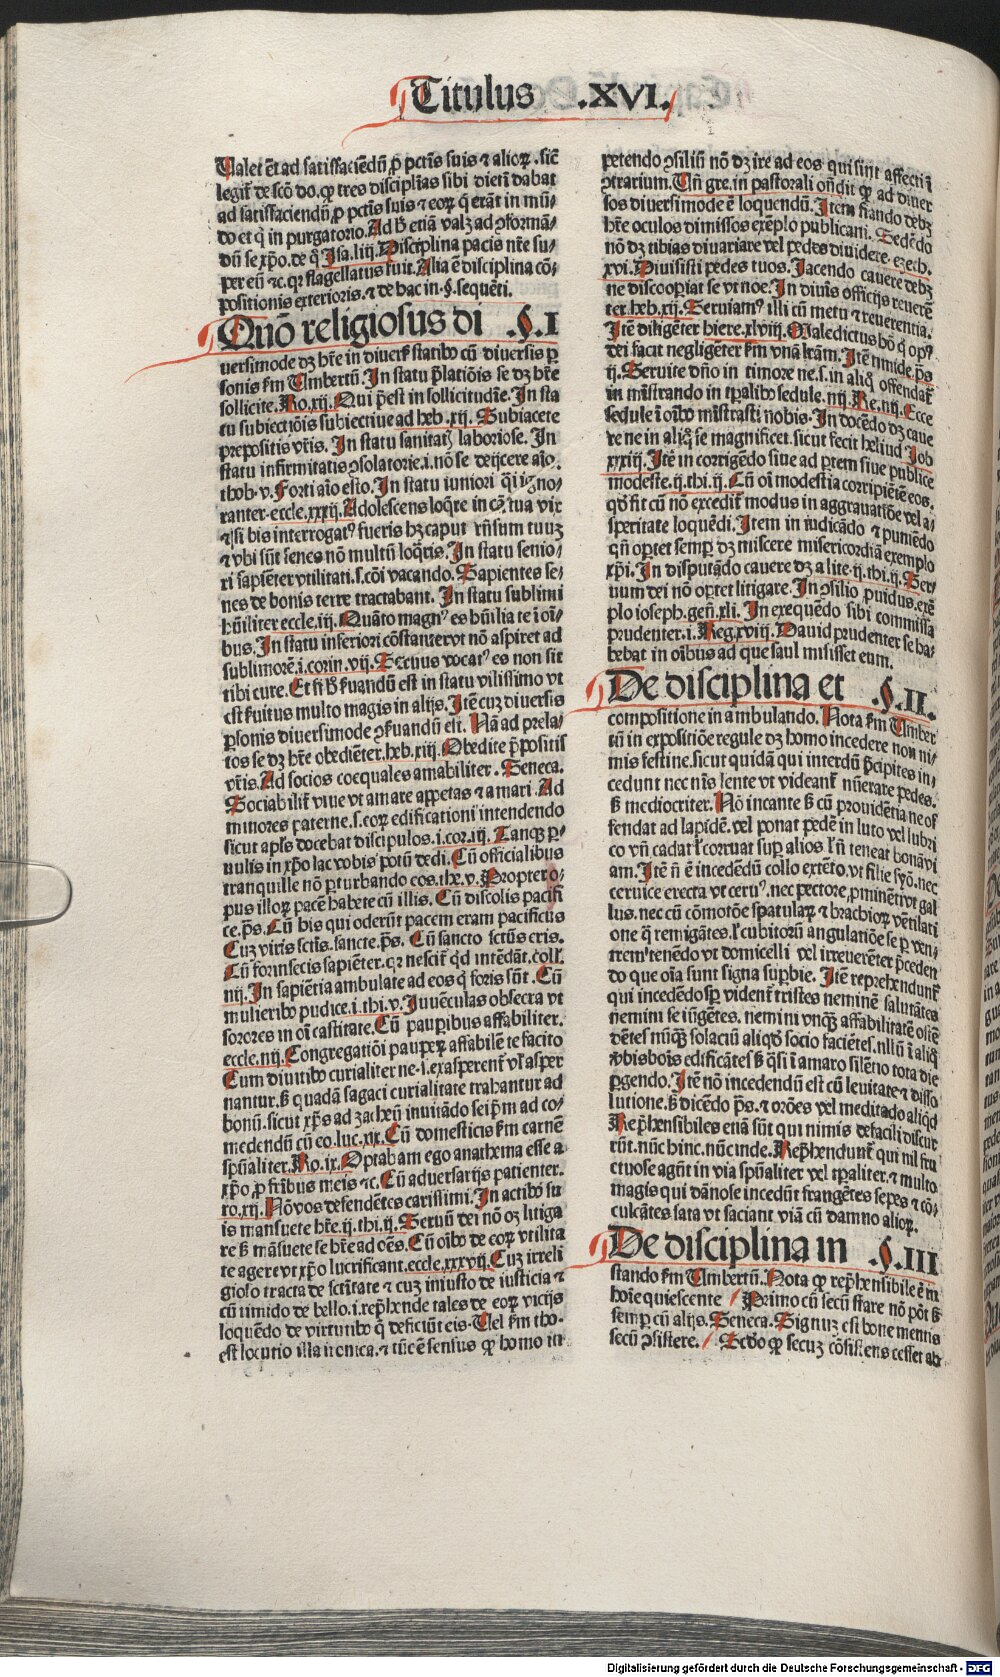 Titulus .XVI.
Valet et̄ ad satisfaciēdū ꝓ pctīs suis ⁊ alioꝝ. sic̄
legit̄ de scō do. ꝙ tres disciplīas sibi dieti dabat
ad satisfaciendū ꝓ pctīs suis ⁊ eoꝝ q̄ erāt in mū/
do et q̄ in purgatorio. Ad ħ etiā valꝫ ad ꝯformā/
dū se xp̄o. de q̄ Isa. liij. Disciplina pacis nr̄e su/
per eū ⁊c. qꝛ flagellatus fuit. Alia ē disciplina cō/
positionis exterioris. ⁊ de hac in .§. sequēti.
Quō religiosus di .§.I
uersimode dꝫ hr̄e in diuers̄ statibꝰ cū diuersis ꝑ
sonis s̄m Vmbertū. In statu p̄latiōis se dꝫ hr̄e
sollicite. Ro. xij. Qui p̄est in sollicitudīe. In sta
tu subiectiōis subiectiue ad heb. xij. Subiacete
prepositis vr̄is. In statu sanitatꝭ laboriose. In
statu infirmitatis ꝯsolatorie .i. nō se deijcere aīo.
thob. v. Forti aīo esto. In statu iuniori q̄i igno/
ranter. eccle. xxxij. Adolescens loq̄re in cā tua vix
⁊ si bis interrogatꝰ fueris hꝫ caput rn̄sum tuuꝫ
⁊ vbi sūt senes nō multū loq̄ris. In statu senio/
ri sapiēter vtilitati .s. cōi vacando. Sapientes se/
nes de bonis terre tractabant. In statu sublimi
hūiliter eccle. iij. Quāto magnꝰ es hūilia te ī oī/
bus. In statu inferiori cōstanter vt nō aspiret ad
sublimorē. i. corin. vij. Seruus vocatꝰ es non sit
tibi cure. Et si ħ ſuandū est in statu vilissimo vt
est ſuitus multo magis in alijs. Itē cuꝫ diuersis
ꝑsonis diuersimode ꝯſuandū est. Nā ad prela/
tos se dꝫ hr̄e obediēter. heb. xiij. Obedite p̄positis
vr̄is. Ad socios coequales amabiliter. Seneca.
Sociabilit̄ viue vt amare appetas ⁊ amari. Ad
minores paterne .s. eoꝝ edificationi intendendo
sicut apl̄s docebat discipulos. i. cor. iij. Tanqꝫ ꝑ/
uulis in xp̄o lac vobis potū dedi. Cū officialibus
tranquille nō ꝑturbando eos. the. v. Propter o/
pus illoꝝ pacē habete cū illis. Cū discolis pacifi
ce. ps̄. Cū his qui oderūt pacem eram pacificus
Cuꝫ viris sctīs. sancte. ps̄. Cū sancto sctūs eris.
Cū forinsecis sapiēter. qꝛ nescit̄ qd intēdāt. coll.
iiij. In sapiētia ambulate ad eos q̄ foris sūt. Cū
mulieribꝰ pudice. i. thi. v. Iuuēculas obsecra vt
sorores in oī castitate. Cū pauperibus affabiliter.
eccle. iiij. Congregatiōi pauperꝝ affabilē te facito
Cum diuitibꝰ curialiter ne .i. exasperent̄ vl̓ asper
nantur. sꝫ quadā sagaci curialitate trahantur ad
bonū. sicut xp̄s ad zacheū inuitādo seip̄m ad co/
medendū cū eo. luc. xix. Cū domesticis s̄m carnē
sp̄ualiter. Ro. ix. Optabam ego anathema esse a
xp̄o ꝓ frībus meis ⁊c. Cū aduersarijs patienter.
ro. xij. Nō vos defendētes carissimi. In actibꝰ su
is mansuete hr̄e. ij. thi. ij. Seruū dei nō oꝫ litiga
re sꝫ māsuete se hr̄e ad oēs. Cū oībꝰ de eoꝝ vtilita
te agere vt xp̄o lucrificant. eccle. xxxvij. Cuꝫ irreli
gioso tracta de sctītate ⁊ cuꝫ iniusto de iusticia ⁊
cū timido de bello .i. rep̄hende tales de eoꝝ vicijs
loquēdo de virtutibꝰ q̄ deficiūt eis. Vel s̄m tho.
est locutio illa ironica. ⁊ tūc ē sensus ꝙ homo in
petendo ꝯsiliū nō dꝫ ire ad eos qui sint affecti ī
ꝯtrarium. Vn̄ gre. in pastorali on̄dit ꝙ ad diuer
sos diuersimode ē loquendū. Item stando debꝫ
hr̄e oculos dimissos exēplo publicani. Sedēdo
nō dꝫ tibias diuariare vel pedes diuidere. ezech.
xvi. Diuisisti pedes tuos. Iacendo cauere debꝫ
ne discooꝑiat se vt noe. In diuis officijs reuerē
ter. heb. xij. Seruiamꝰ illi cū metu ⁊ reuerentia.
Itē diligēter hiere. xlviij. Maledictus hō q̄ opꝰ
dei facit negligēter s̄m vnā lr̄am. Itē timide. ps̄
ij. Seruite dn̄o in timore ne .s. in aliq̄ offendat̄
in mīstrando in tꝑalibꝰ sedule. iiij. Re. iiij. Ecce
sedule ī oībꝰ mīstrasti nobis. In docēdo dꝫ caue
re ne in aliq̄ se magnificet. sicut fecit heliud Iob
xxxiij. Itē in corrigēdo siue ad ꝑtem siue publice
modeste. ij. thi. ij. Cū oī modestia corripiētē eos.
qd fit cū nō excedit̄ modus in aggrauatiōe vel a/
speritate loquēdi. Item in iudicādo ⁊ puniēdo
qn̄ oꝑtet semꝑ dꝫ miscere misericordiā exemplo
xp̄i. In disputādo cauere dꝫ a lite. ij. thi. ij. Ser
uum dei nō oꝑtet litigare. In ꝯsilio ꝓuidus. exē
plo ioseph. gen̄. xli. In exequēdo sibi commissa
prudenter. i. Reg. xviij. Dauid prudenter se ha/
bebat in oībus ad que saul misisset eum.
De disciplina et .§.II.
compositione in ambulando. Nota s̄m Vmber
tū in expositiōe regule dꝫ homo incedere non ni/
mis festine. sicut quidā qui interdū p̄cipites in/
cedunt nec nīs lente vt videant̄ nūerare pedes.
sꝫ mediocriter. Nō incaute sꝫ cū prouidētia ne of
fendat ad lapidē. vel ponat pedē in luto vel lubri
co vn̄ cadat l̓ corruat suꝑ alios l̓ n̄ teneat bonā vi
am. Itē n̄ ē incedēdū collo extēto. vt filie syō. nec
ceruice erecta vt ceruꝰ. nec pectore ꝓminēti vt gal
lus. nec cū cōmotōe spatulaꝝ ⁊ brachioꝝ vētilati
one q̄ remigātes. l̓ cubitorū angulatiōe se ꝑ ven/
trem tenēdo vt domicelli vel irreuerēter p̄ceden
do que oīa sunt signa suꝑbie. Itē reprehendunt̄
qui incedēdo sꝑ vident̄ tristes neminē salutātes
nemini se iūgētes. nemini vnqꝫ affabilitatē ostē
dētes nūqꝫ solaciū aliqd socio faciētes. nllū ī aliq̄
v̄bis bois edificātes sꝫ q̄si ī amaro silētio tota die
ꝑgendo. Itē nō incedendū est cū leuitate ⁊ disso
lutione. sꝫ dicēdo ps̄. ⁊ orōes vel meditādo aliqd
Rep̄hensibiles etiā sūt qui nimis de facili discur
rūt. nūc hinc. nūc inde. Rep̄hendunt̄ qui nil fru
ctuose agūt in via sp̄ualiter vel tꝑaliter. ⁊ multo
magis qui dānose incedūt frangētes sepes ⁊ cō/
culcātes sata vt faciant viā cū damno alioꝝ.
De disciplina in .§.III
stando s̄m Vmbertū. Nota ꝙ rep̄hensibile ē in
hoīe quiescente Primo cū secū stare nō pōt sꝫ
semꝑ cū alijs. Seneca. Signuꝫ est bone mentis
secū ꝯsistere. Scdo ꝙ secuꝫ cōsistens cesset ab
Digitalisierung gefördert durch die Deutsche Forschungsgemeinschaft - DFG